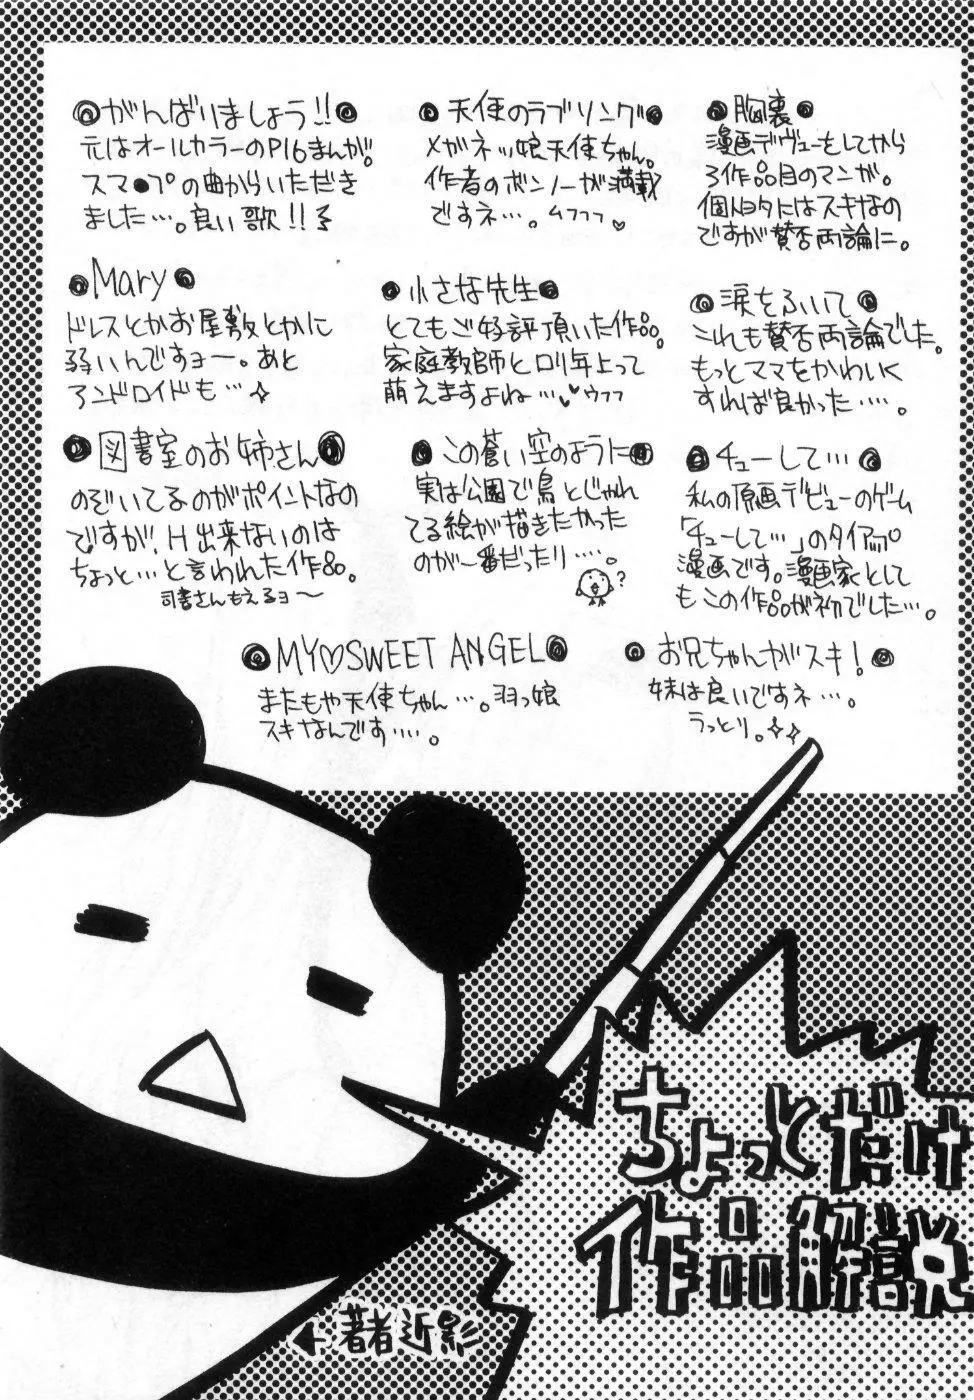 胸裏
漫画デヴューをしてから
3作品目のマンガ。
個人的にはスキなの
ですが賛否両論に。
天使のラブソング
メガネッ娘天使ちゃん。
作者のボンノーが満載
ですネ…。ムフフフ♡
がんばりましょう!!
元はオールカラーのP16まんが。
スマ●プの曲からいただき
ました…。良い歌!!
涙をふいて
これも賛否両論でした。
もっとママをかわいく
すれば良かった…‥。
小さな先生
とてもご好評頂いた作品。
家庭教師とロリ年上って
萌えますよね…♥ウフフ
Mary
ドレスとかお屋敷とかに
弱いんですョー。あと
アンドロイドも…☆
チューして…
私の原画デビューのゲーム
「チューして…」のタイアップ
漫画です。漫画家として
もこの作品が初でした…。
この蒼い空のように
実は公園で鳥とじゃれ
てる絵が描きたかった
のが一番だったり…‥
?
図書室のお姉さん
のぞいてるのがポイントなの
ですが、H出来ないのは
ちょっと…と言われた作品。
司書さんもえるョ〜
お兄ちゃんがスキ!
妹は良いですネ…。
うっとり。☆☆
MY♡SWEET ANGEL
またもや天使ちゃん…。羽っ娘
スキなんです…‥。
ちょっとだけ
作品解説
←著者近影